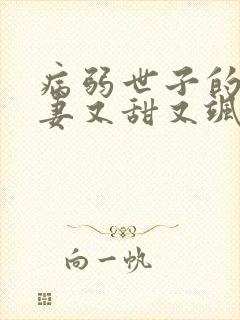 病弱世子的
妻又甜又飒
向一帆